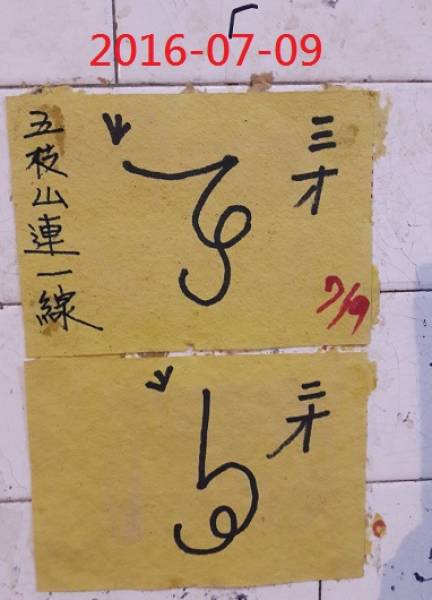 2016-07-09
五枝山連一線
三才
7/9
二才